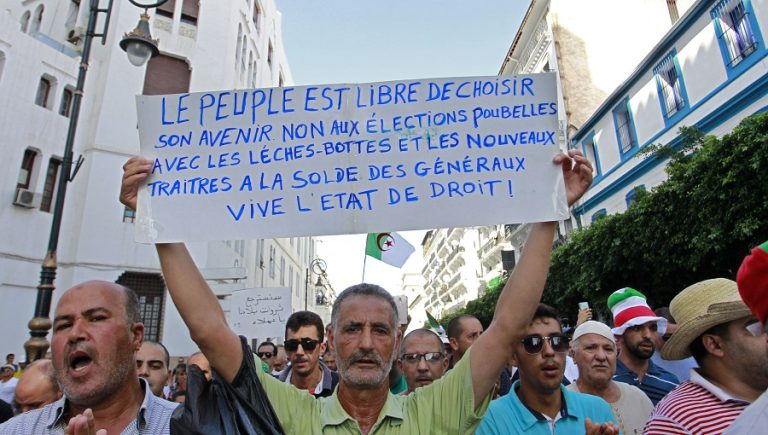 LE PEUPLE EST LIBRE DE CHOISIR
SON AVENIR NON AUX ÉLECTIONS POUBELLES
AVEC LES LÉCHES-BOTTES ET LES NOUVEAUX
TRAITRES A LA SOLDE DES GÉNÉRAUX
VIVE L'ETAT DE DROIT !
سنسترجع
ثروات بلادنا